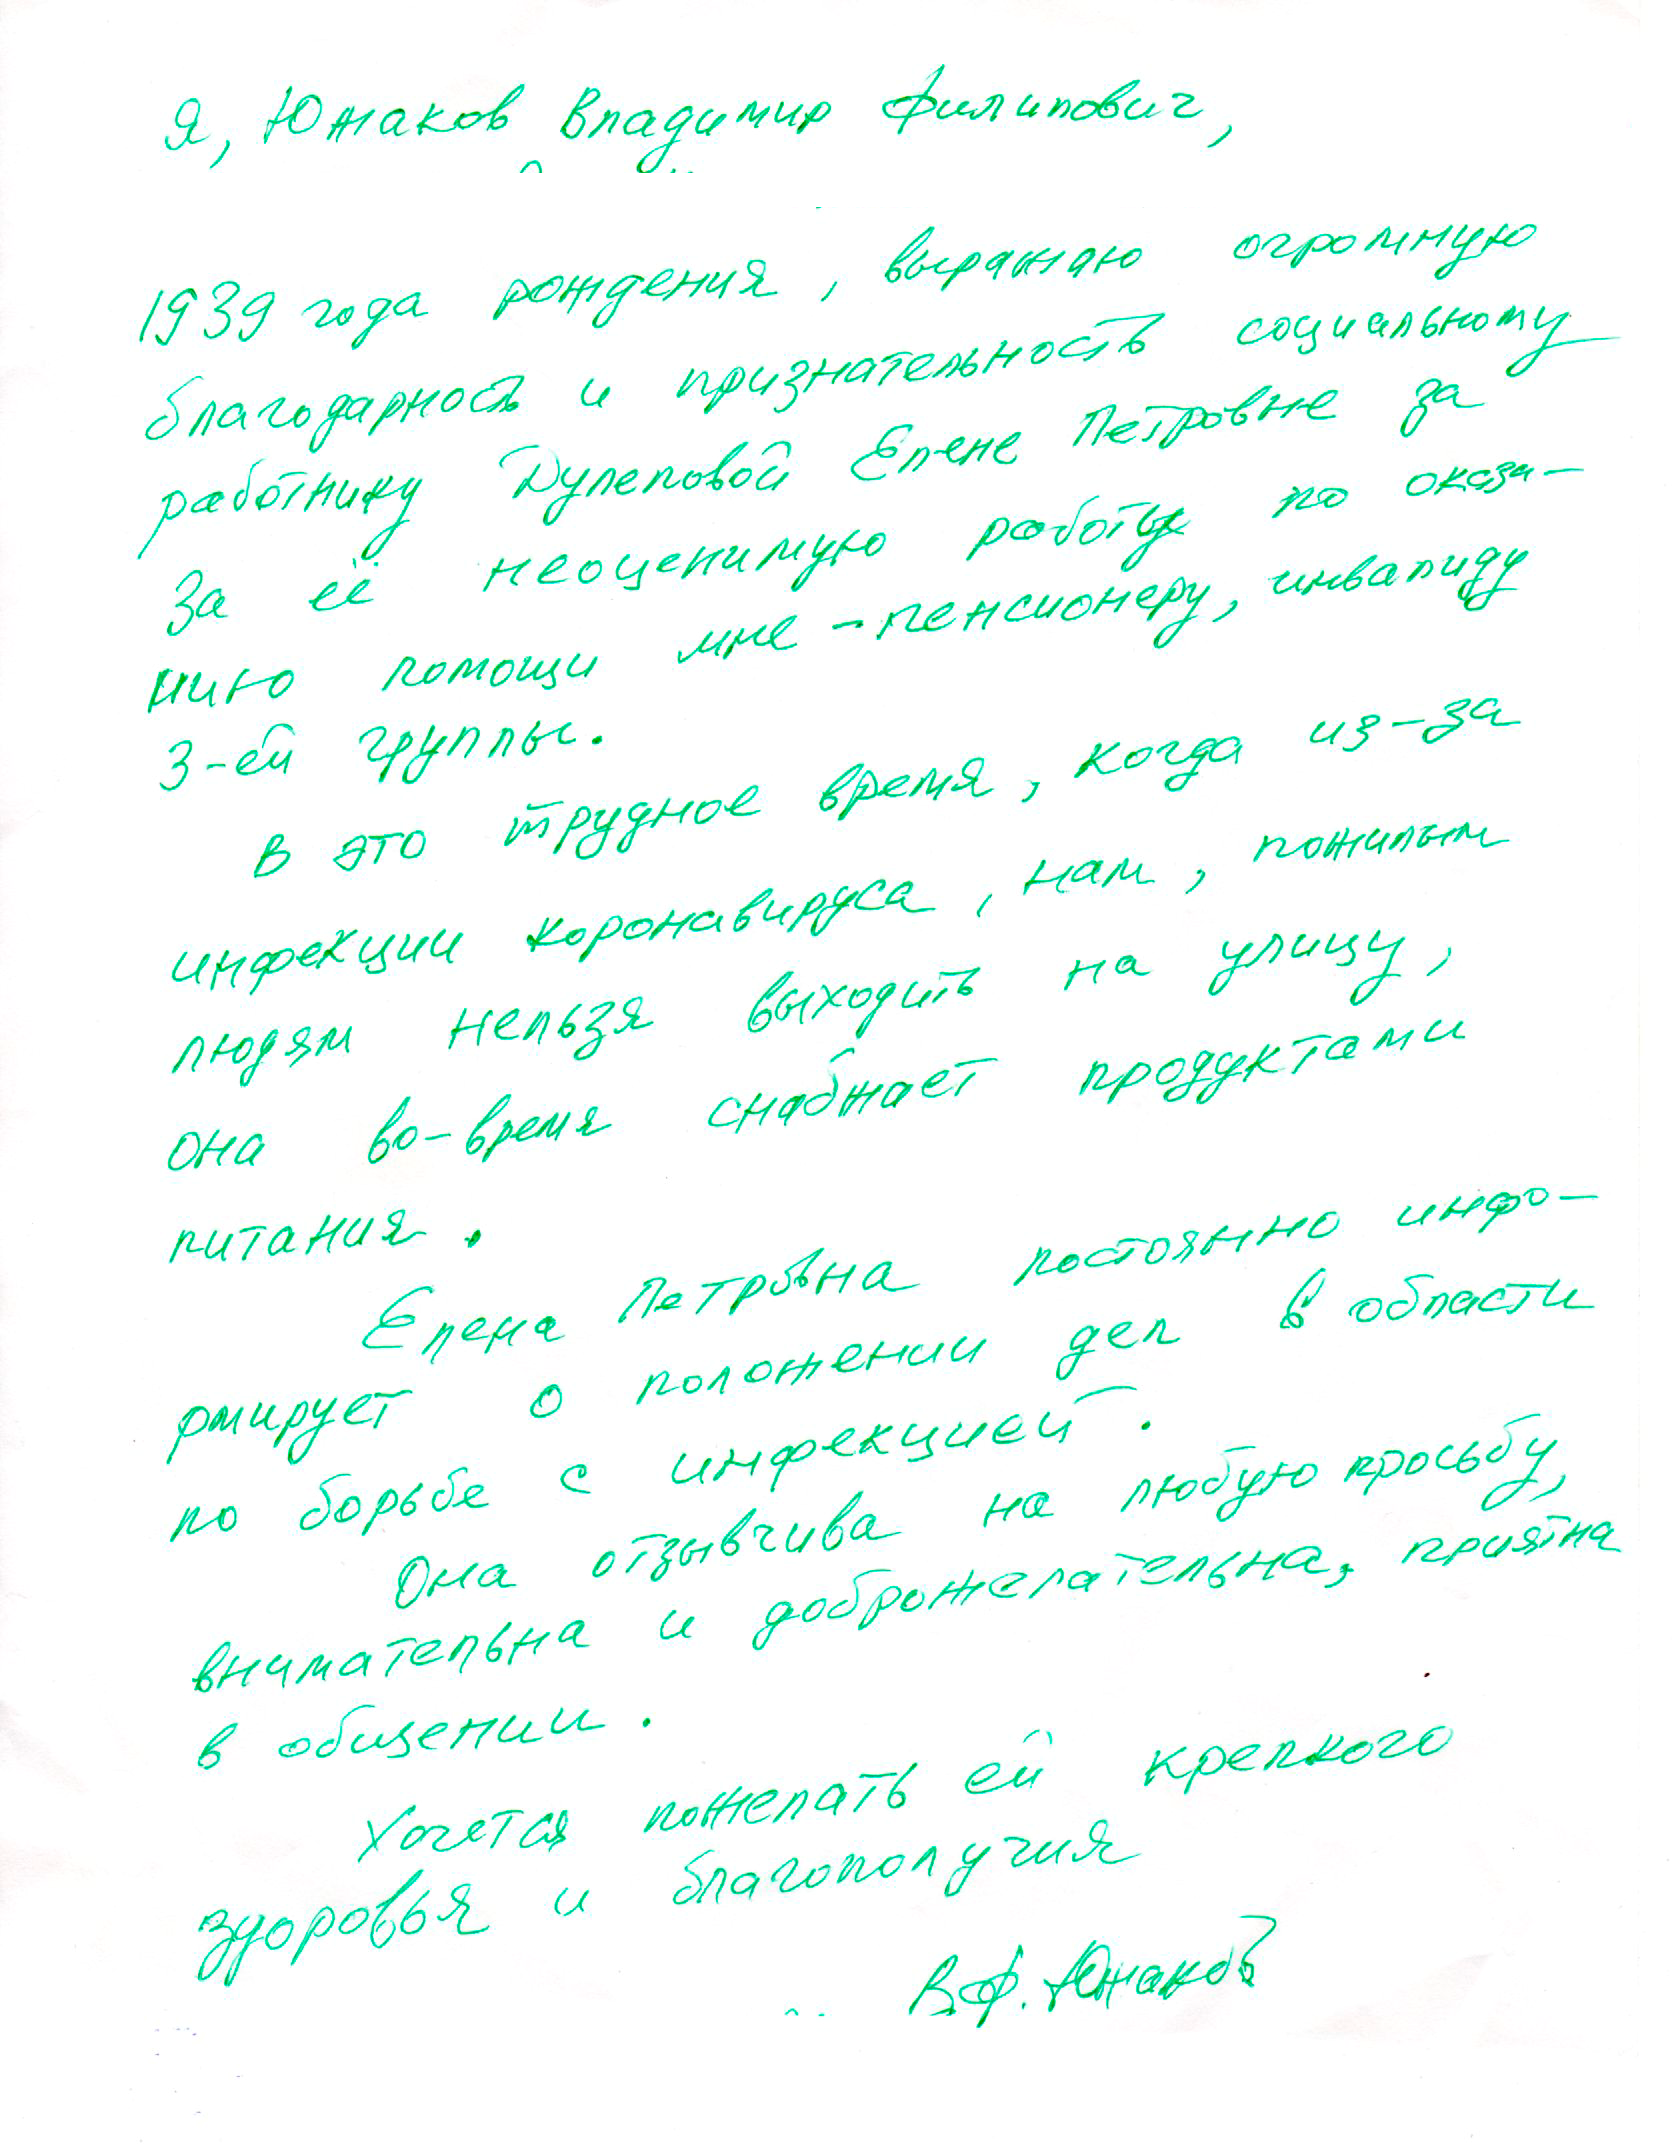 Я, Южаков Владимир Филипович,
1939 года рождения, выражаю огромную
благодарность и признательность социальному
работнику Дулеповой Елене Петровне за
За её неоценимую работу по оказа-
нию помощи мне - пенсионеру, инвалиду
3-ей группы.
В это трудное время, когда из-за
инфекции коронавируса, нам, пожилым
людям нельзя выходить на улицу,
она во-время снабжает продуктами
питания.
Елена Петровна постоянно инфо-
рмирует о положении дел в области
по борьбе с инфекцией.
Она отзывчива на любую просьбу,
внимательна и доброжелательна, приятна
в общении.
Хочется пожелать ей крепкого
здоровья и благополучия
В.Ф. Южаков